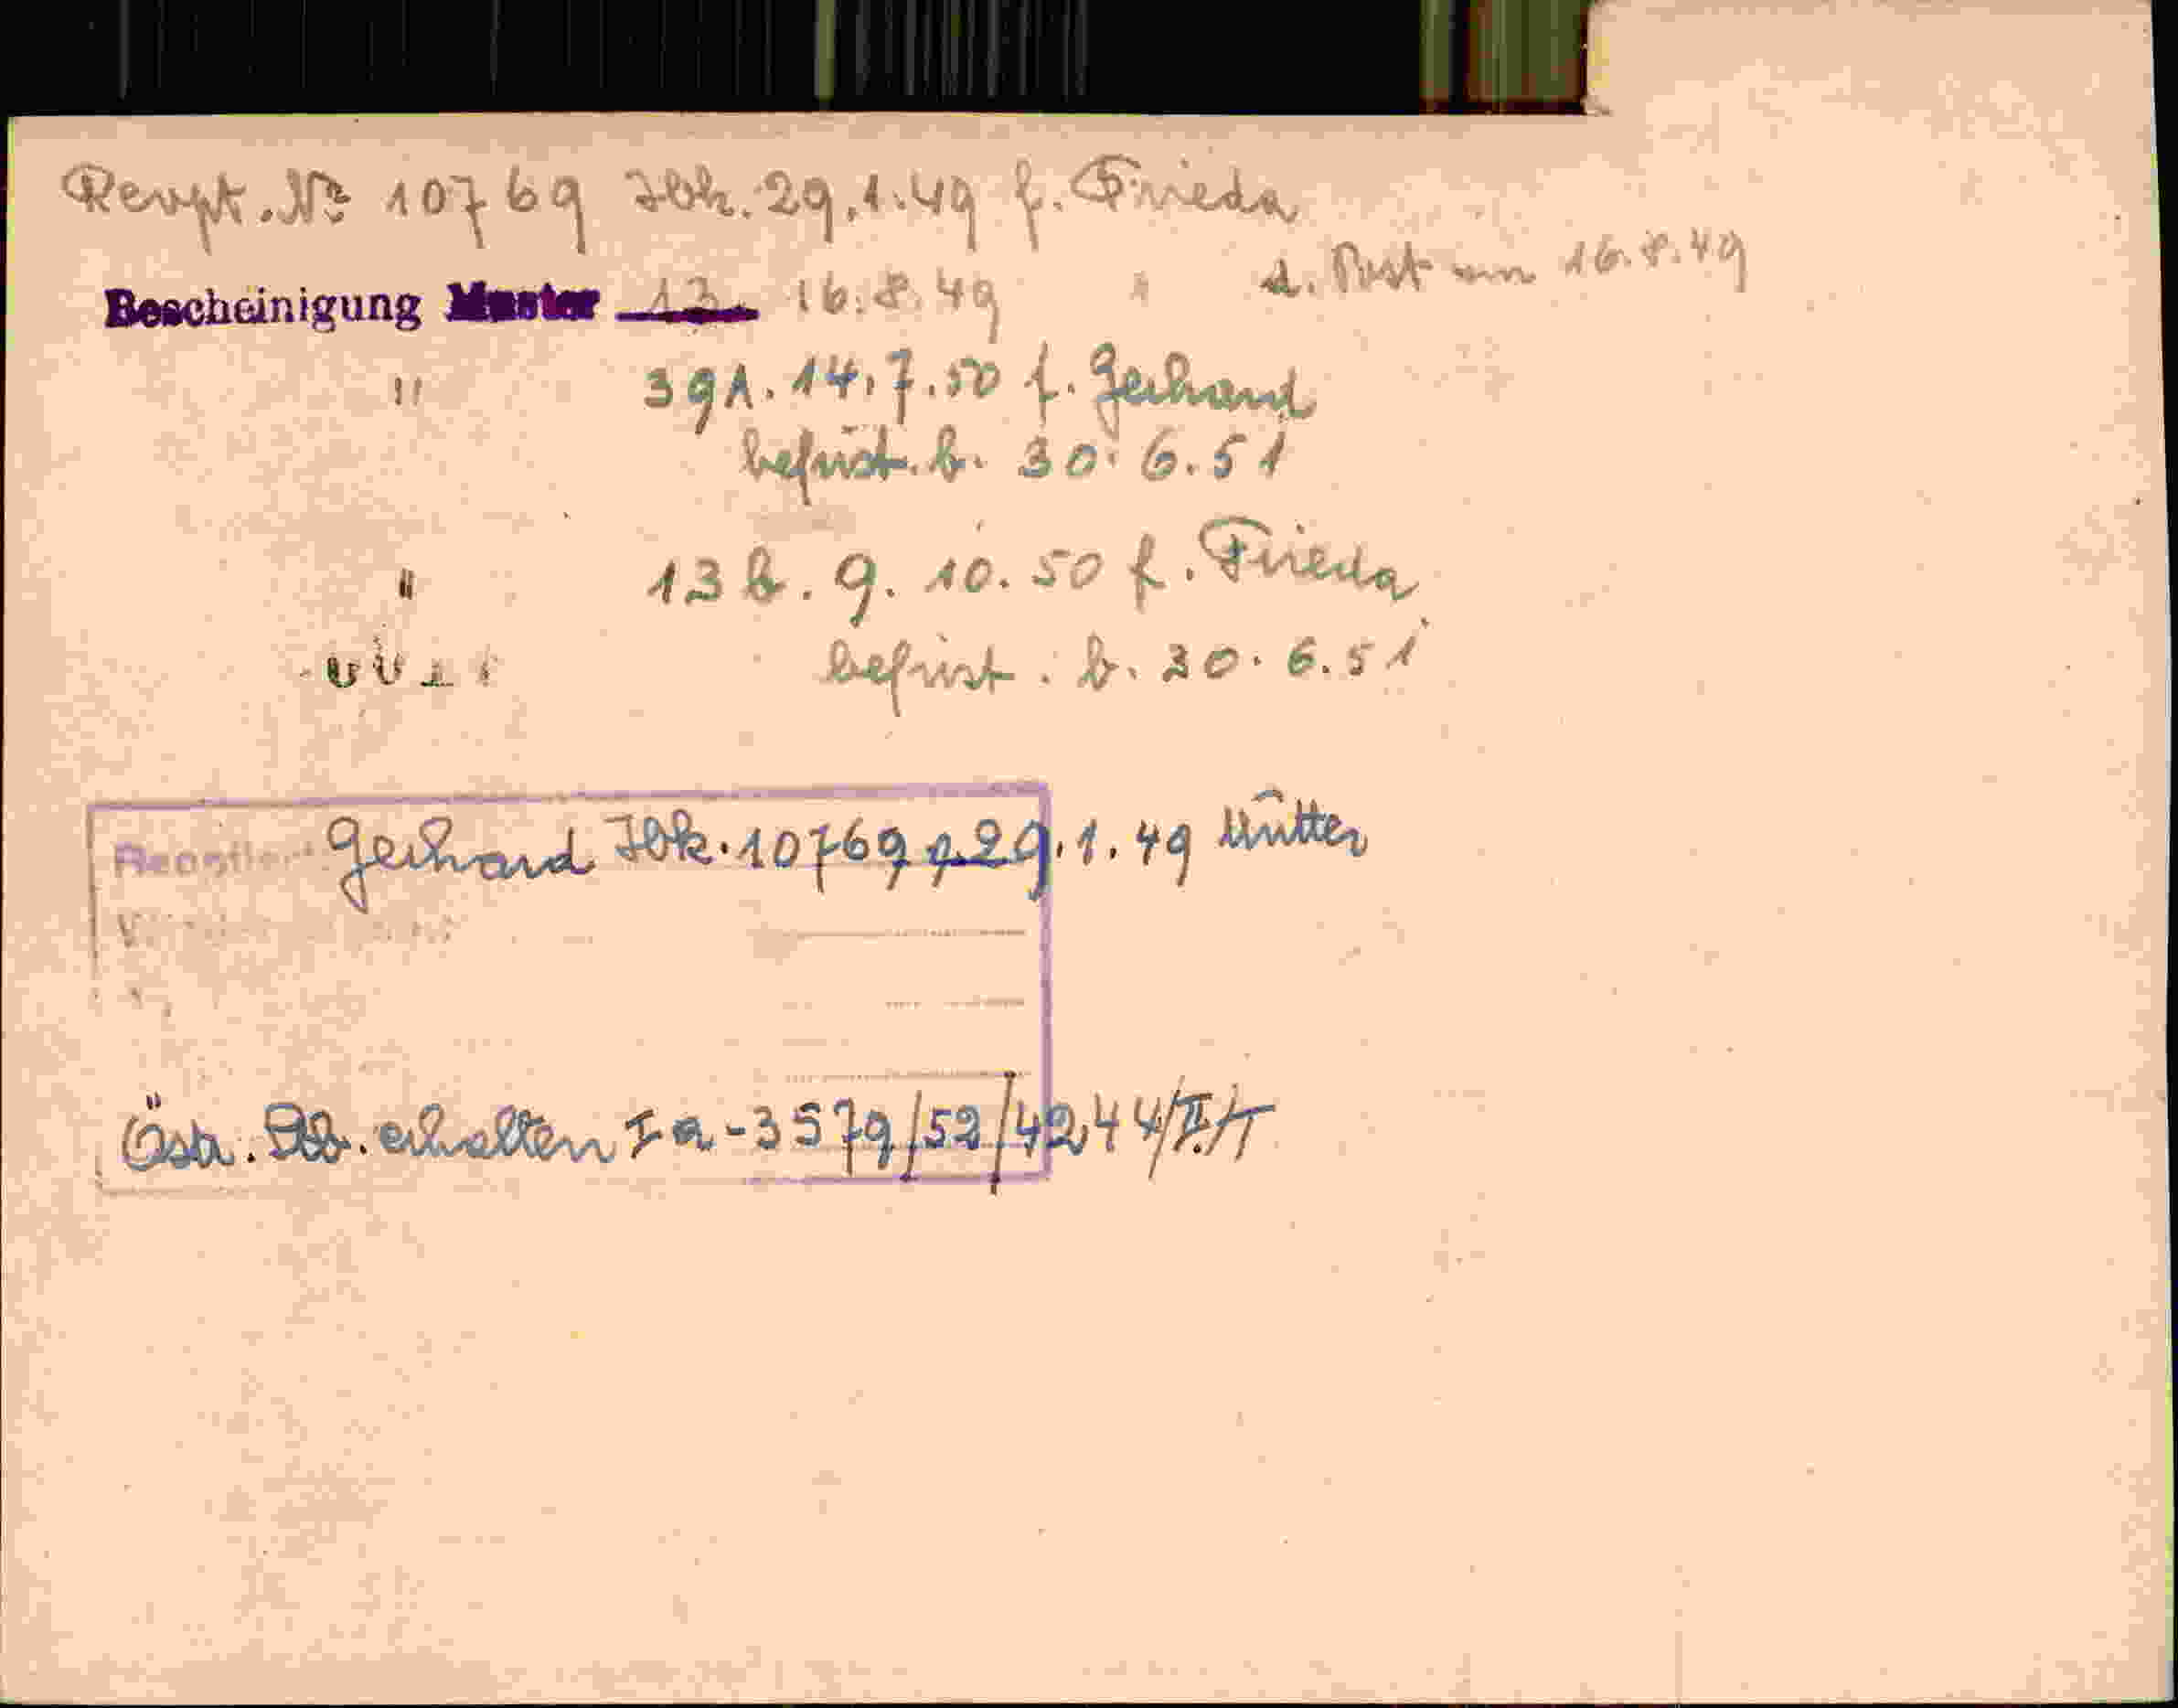 Rempt. № 10769 Jbk. 29.1.49 f. Frieda
Bescheinigung Muster 13 16.8.49 " d. Post am 16.8.49
" 39A. 14.7.50 f. Gerhard
befrist. b. 30.6.51
" 13b. 9.10.50 f. Frieda
befrist. b. 30.6.51
Gerhard Jbk. 10769 v. 29.1.49 Mutter
Östr. Stb. erhalten Ia-3579/52/4244/II/T